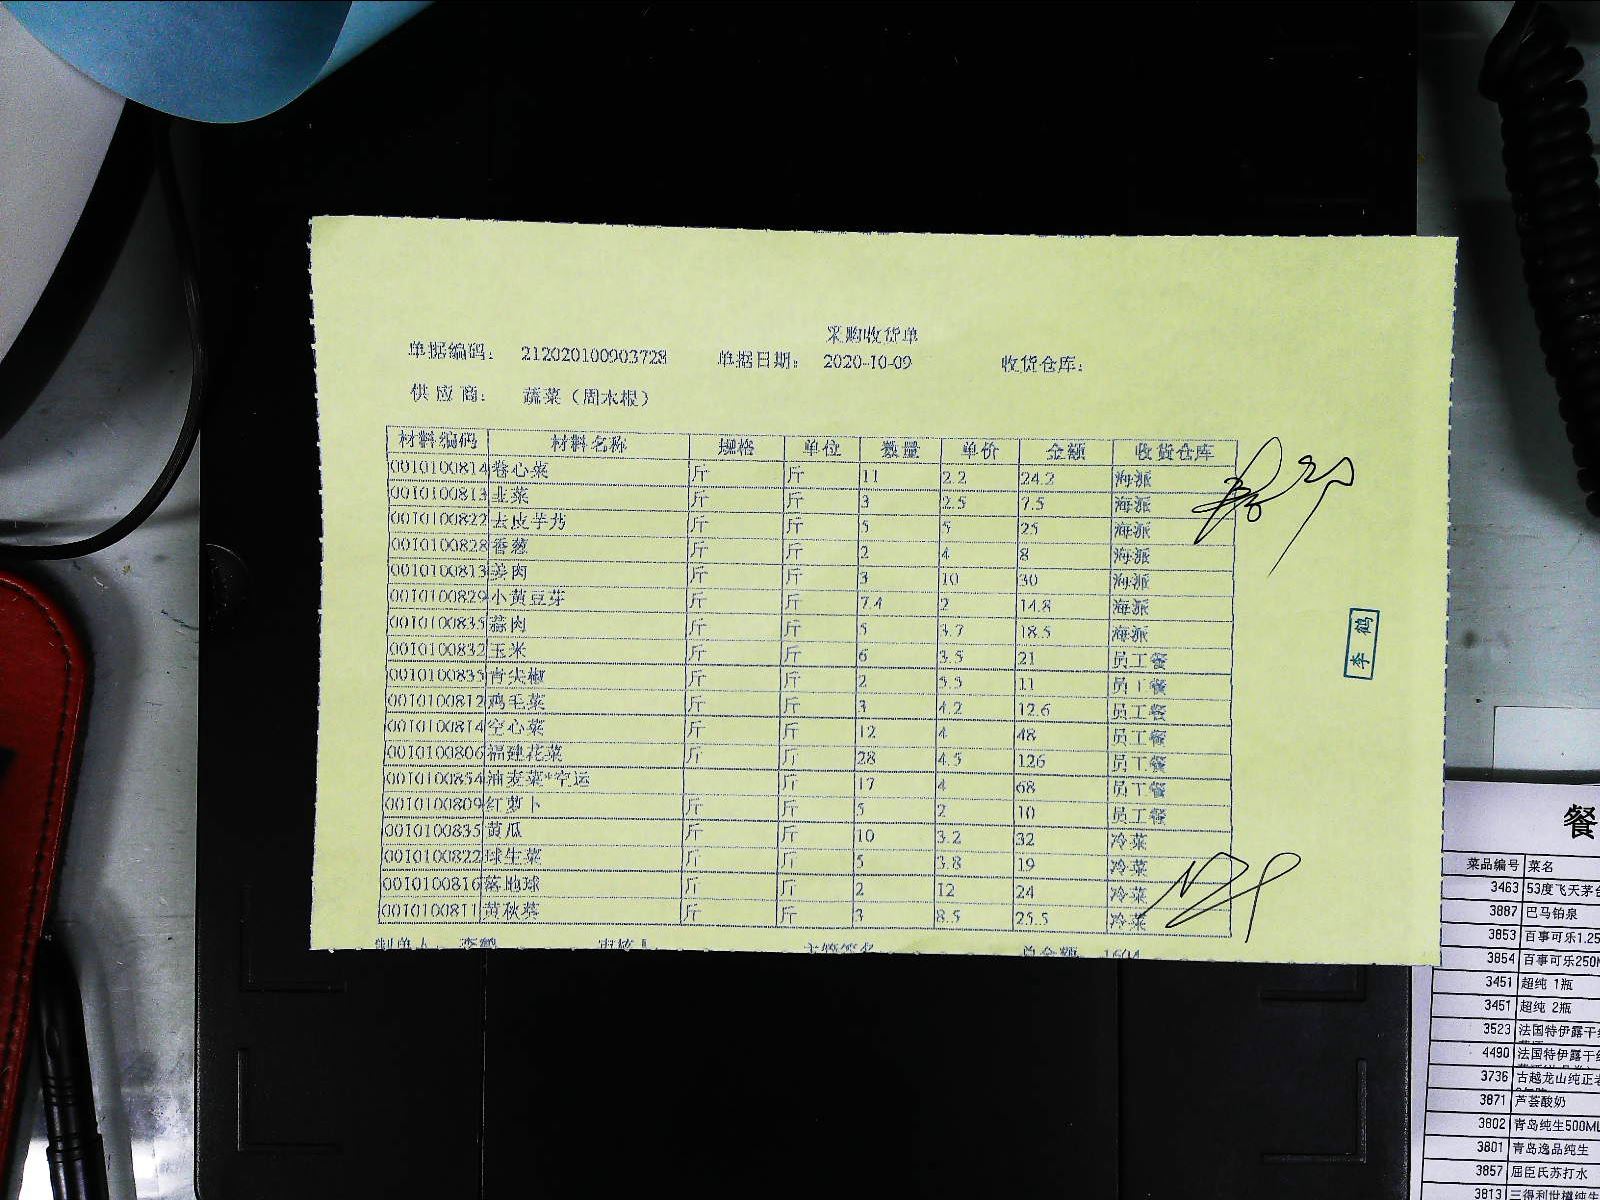 采购收货单
单据编码： 212020100903728 单据日期： 2020-10-09 收货仓库：
供 应 商： 蔬菜（周木根）
材料编码 材料名称 规格 单位 数量 单价 金额 收货仓库
0010100814 卷心菜 斤 斤 11 2.2 24.2 海派
0010100813 韭菜 斤 斤 3 2.5 7.5 海派
0010100822 去皮芋艿 斤 斤 5 5 25 海派
0010100828 香葱 斤 斤 2 4 8 海派
0010100813 姜肉 斤 斤 3 10 30 海派
0010100829 小黄豆芽 斤 斤 7.4 2 14.8 海派
0010100835 蒜肉 斤 斤 5 3.7 18.5 海派
0010100832 玉米 斤 斤 6 3.5 21 员工餐
0010100835 青尖椒 斤 斤 2 5.5 11 员工餐
0010100812 鸡毛菜 斤 斤 3 4.2 12.6 员工餐
0010100814 空心菜 斤 斤 12 4 48 员工餐
0010100806 福建花菜 斤 斤 28 4.5 126 员工餐
0010100854 油麦菜*空运 斤 17 4 68 员工餐
0010100809 红萝卜 斤 斤 5 2 10 员工餐
0010100835 黄瓜 斤 斤 10 3.2 32 冷菜
0010100822 球生菜 斤 斤 5 3.8 19 冷菜
0010100816 落地球 斤 斤 2 12 24 冷菜
0010100811 黄秋葵 斤 斤 3 8.5 25.5 冷菜
制单人： 李鹤 审核人 主管签名 总金额
李鹤
餐
菜品编号 菜名
3463 53度飞天茅台
3887 巴马铂泉
3853 百事可乐1.25
3854 百事可乐250M
3451 超纯 1瓶
3451 超纯 2瓶
3523 法国特伊露干红
4490 法国特伊露干红
3736 古越龙山纯正
3871 芦荟酸奶
3802 青岛纯生500ML
3801 青岛逸品纯生
3857 屈臣氏苏打水
3813 三得利世博纯生